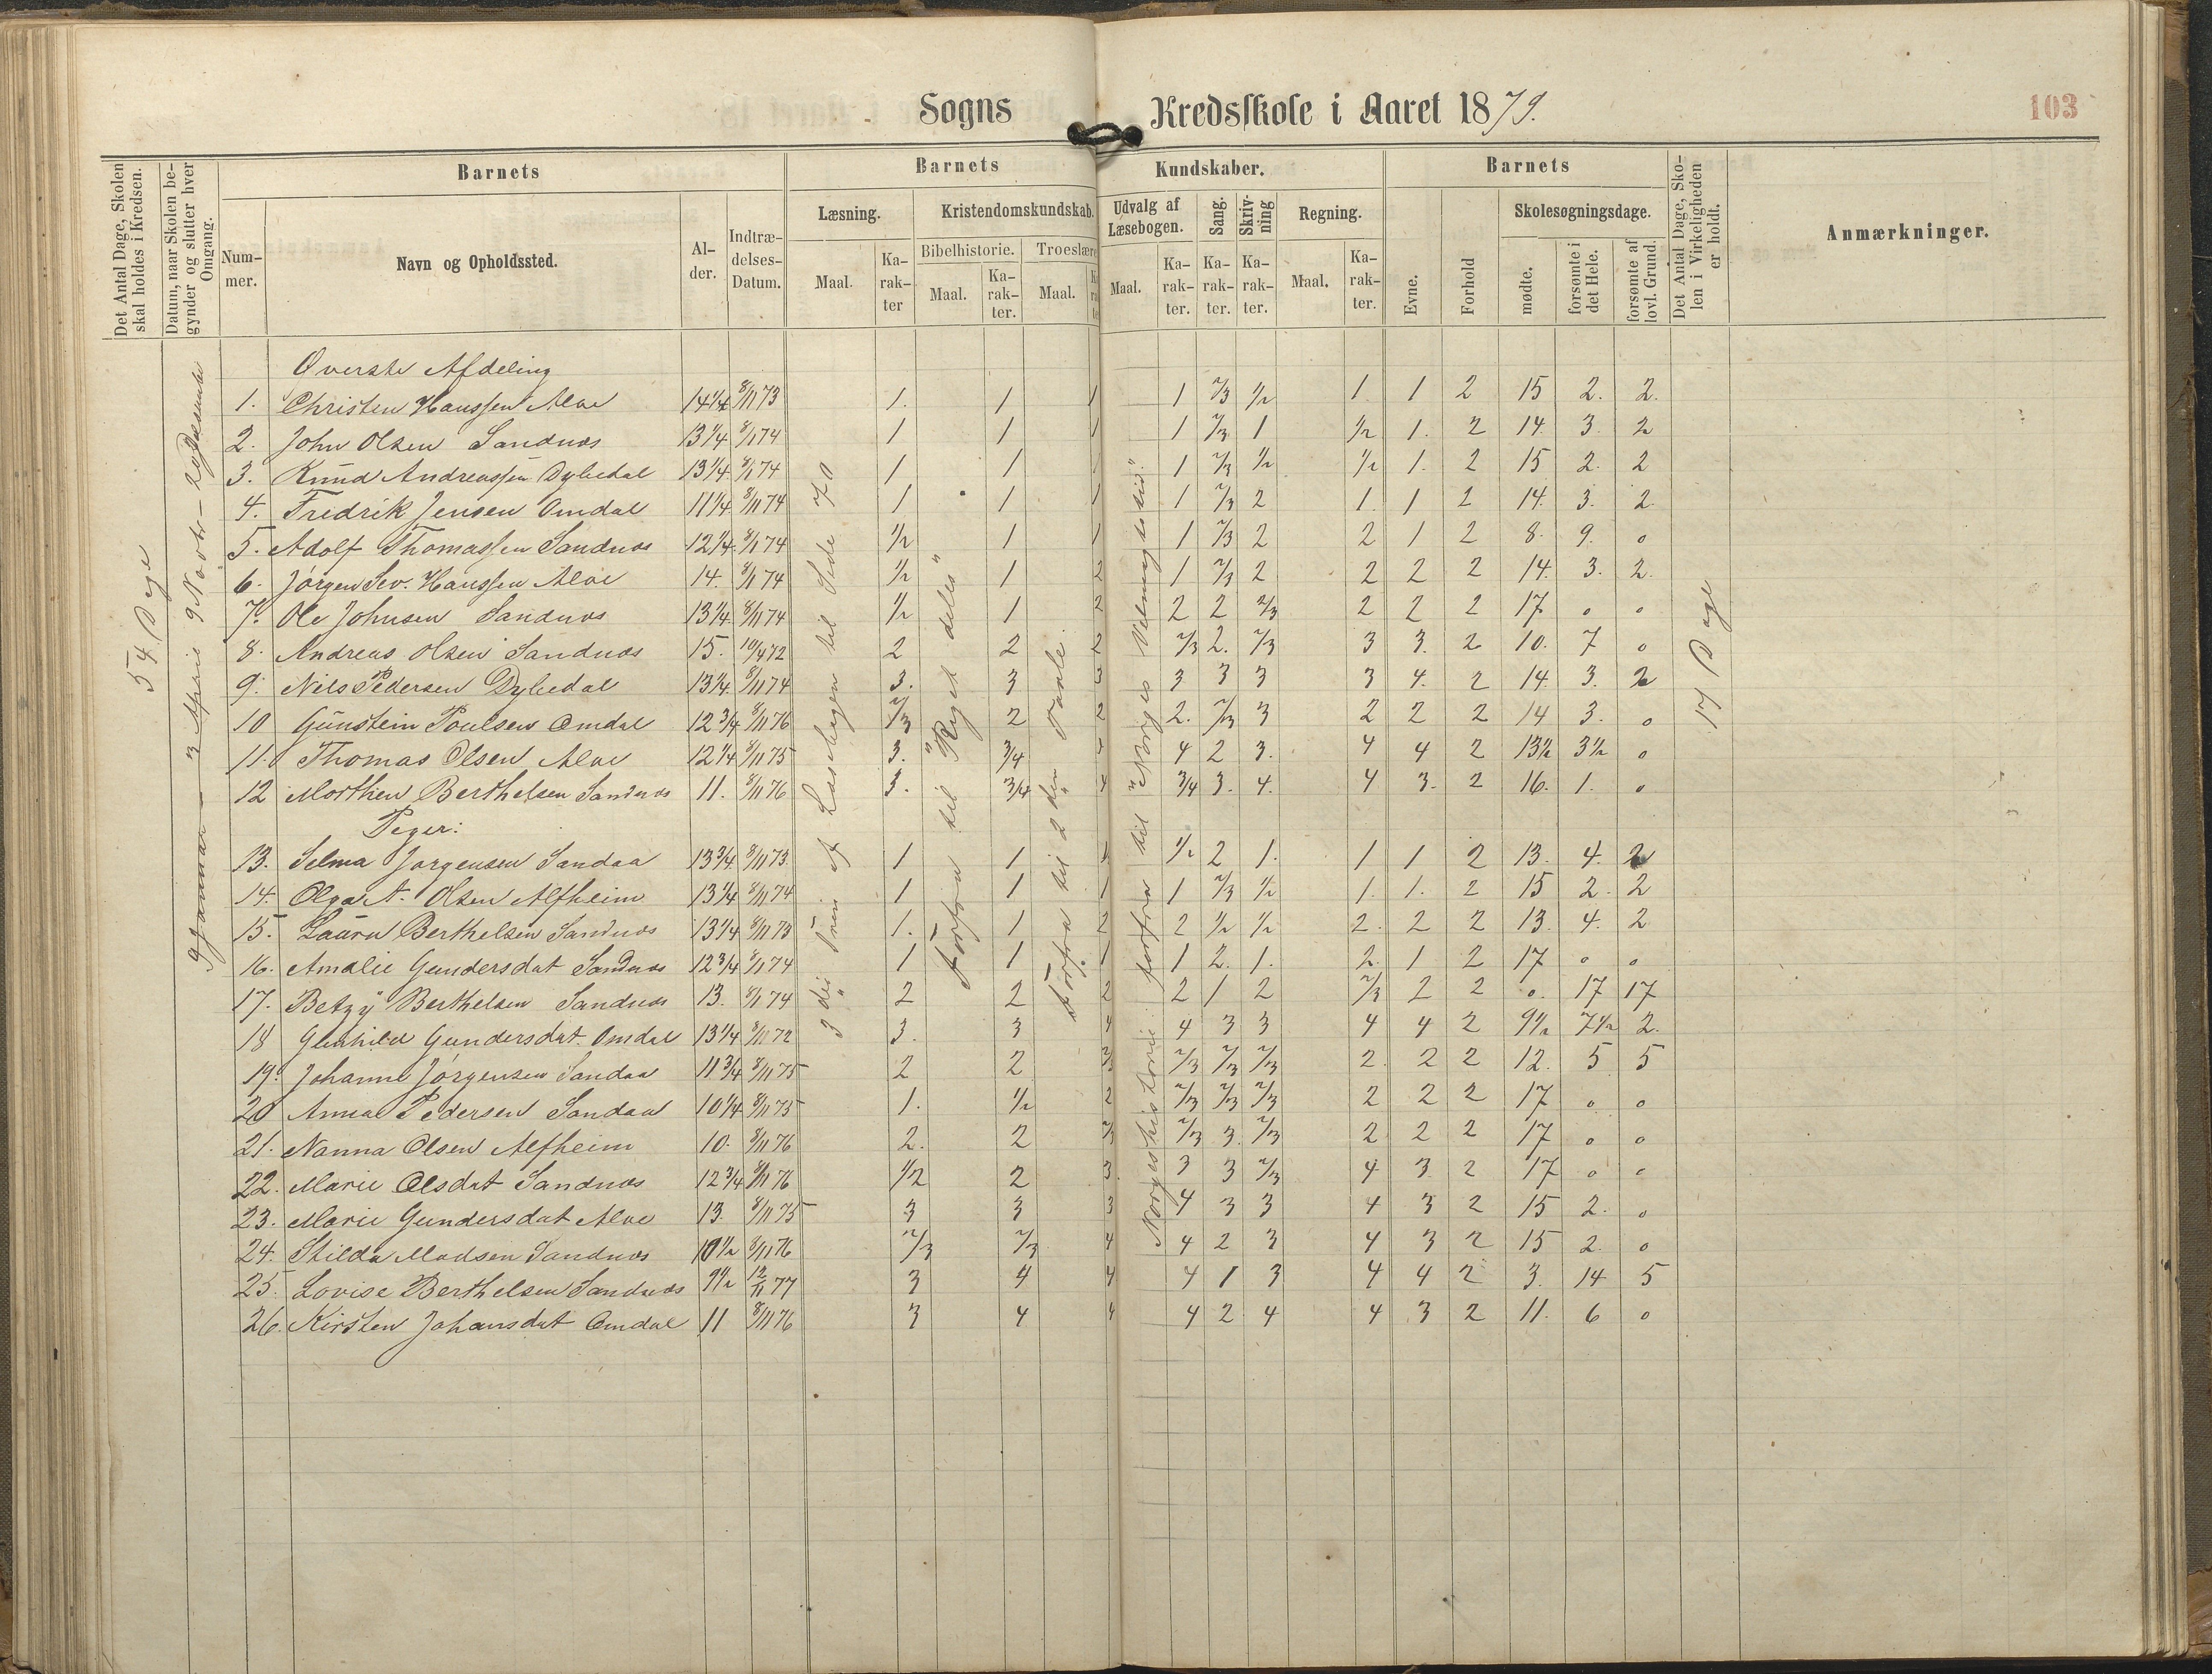 Sogns Kredsskole i Aaret 1879.
103
Det Antal Dage, Skolen skal holdes i Kredsen.
Datum, naar Skolen begynder og slutter hver Omgang.
Barnets
Barnets Kundskaber.
Barnets
Det Antal Dage, Skolen i Virkeligheden er holdt.
Anmærkninger.
Nummer.
Navn og Opholdssted.
Alder.
Indtrædelses-Datum.
Læsning.
Kristendomskundskab.
Udvalg af Læsebogen.
Sang.
Skrivning
Regning.
Evne.
Forhold
Skolesøgningsdage.
Bibelhistorie. Troeslære
Maal. Karakter Maal. Karakter. Maal. Maal. Karakter. Karakter. Karakter. Maal. Karakter.
mødte. forsømte i det Hele. forsømte af lovl. Grund.
54 Dage
17 Dage
Øverste Afdeling
1. Christen Hanssen Alve 14 1/4 8/11 73 1. 1 1 1 2/3 1/2 1 1 2 15 2. 2.
2. John Olsen Sandnæs 13 1/4 8/1 74 1 1 1 1 2/3 1 1/2 1. 2 14. 3. 2
3. Knud Andreassen Dybedal 13 1/4 8/1 74 1 1 1 1 2/3 1/2 1/2 1. 2 15 2. 2
4. Fredrik Jensen Omdal 11 1/4 8/11 74 1 1 1 1 2/3 2 1. 1 2 14. 3. 2.
5. Adolf Thomassen Sandnæs 12 1/4 8/1 74 1/2 1 1 1 2/3 2 2 1 2 8. 9. 0
6. Jörgen Sev. Hanssen Alve 14. 8/1 74 1/2 1 2 1 2/3 2 2 2 2 14. 3. 2.
7. Ole Johnsen Sandnæs 13 1/4 8/11 74 1/2 1 2 2 2 2/3 2 2 2 17 0 0
8. Andreas Olsen Sandnæs 15. 10/4 72 2 2 2 2/3 2. 2/3 3 3. 2 10. 7 0
9. Nils Pedersen Dybedal 13 1/4 8/11 74 3. 3 3 3 3 3 3 4. 2 14. 3. 2
10 Gunstein Poulsen Omdal 12 3/4 8/11 76 2/3 2 2 2. 2/3 3 2 2 2 14 3. 0
11. Thomas Olsen Alve 12 1/4 8/11 75 3. 3/4 4 4 2 3. 4 4 2 13 1/2 3 1/2 0
12 Morthen Berthelsen Sandnæs 11. 8/11 76 3. 3/4 4 3/4 3. 4. 4 3. 2 16. 1. 0
Piger:
13. Selma Jørgensen Sandaa 13 3/4 8/11 73 1 1 1 1/2 2 1. 1 1 2 13. 4. 2
14. Olga A. Olsen Alfheim 13 1/4 8/11 74 1 1 1 1 2/3 1/2 1. 1. 2 15 2. 2
15. Laura Berthelsen Sandnæs 13 1/4 8/11 73 1. 1 2 2 1/2 1/2 2. 2 2 13. 4. 2
16. Amalie Gundersdat Sandnæs 12 3/4 8/1 74 1 1 1 1 2. 1. 2. 1 2 17 0 0
17. Betzy Berthelsen Sandnæs 13. 8/1 74 2 2 2 2 1 2 2/3 2 2 0. 17 17
18 Gunhild Gundersdat. Omdal 13 1/4 8/11 72 3. 3 4 4 3 3 4 4 2 9 1/2 7 1/2 2.
19. Johanne Jörgensen Sandaa 11 3/4 8/11 75 2 2 2/3 2/3 2/3 2/3 2. 2 2 12. 5 5
20 Anna Pedersen Sandaa 10 1/4 8/11 75 1. 1/2 2 2/3 2/3 2/3 2 2 2 17 0 0
21. Nanna Olsen Alfheim 10. 8/11 76 2. 2 2/3 2/3 3. 2/3 2 2 2 17 0 0
22. Marie Olsdat Sandnæs 12 3/4 8/11 76 1/2 2 3. 3 3 2/3 4 3. 2 17 0 0
23. Marie Gundersdat Alve 13. 8/11 75 3 3 3 4 3 3 4 3 2 15 2. 0
24. Hilda Madsen Sandnæs 10 1/2 8/11 76 2/3 2/3 4 4 2 3 4 3 2 15 2. 0
25. Lovise Berthelsen Sandnæs 9 1/2 12/11 77 3 4 4 4 1 3 4 4 2 3. 14 5
26. Kirsten Johansdat Omdal 11 8/11 76 3 4 4 4 2 4 4 3 2 11. 6 0
3die Trin af Læsebogen til Side 70
Forfra til "Riget deles"
Forfra til 2den Tavle.
Norgeshistorie: forfra til "Norges Velmagtstid".